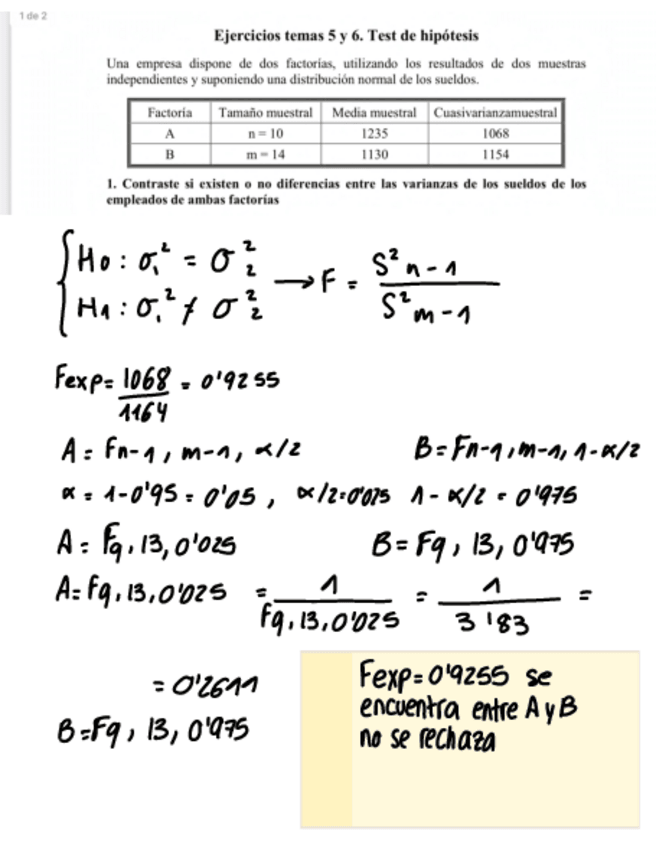 1 de 2
Ejercicios temas 5 y 6. Test de hipótesis
Una empresa dispone de dos factorías, utilizando los resultados de dos muestras
independientes y suponiendo una distribución normal de los sueldos.
Factoría Tamaño muestral Media muestral Cuasivarianzamuestral
A n = 10 1235 1068
B m = 14 1130 1154
1. Contraste si existen o no diferencias entre las varianzas de los sueldos de los
empleados de ambas factorías
H0 : σ₁² = σ₂² → F = S²n-1 / S²m-1
H1 : σ₁² ≠ σ₂²
Fexp = 1068 / 1164 = 0'9255
A = Fn-1, m-1, α/2 B = Fn-1, m-1, 1-α/2
α = 1-0'95 = 0'05, α/2=0'025 1 - α/2 = 0'975
A = F9, 13, 0'025 B = F9, 13, 0'975
A = F9, 13, 0'025 = 1 / F9, 13, 0'025 = 1 / 3'83 =
= 0'2611
B = F9, 13, 0'975
Fexp = 0'9255 se
encuentra entre A y B
no se rechaza